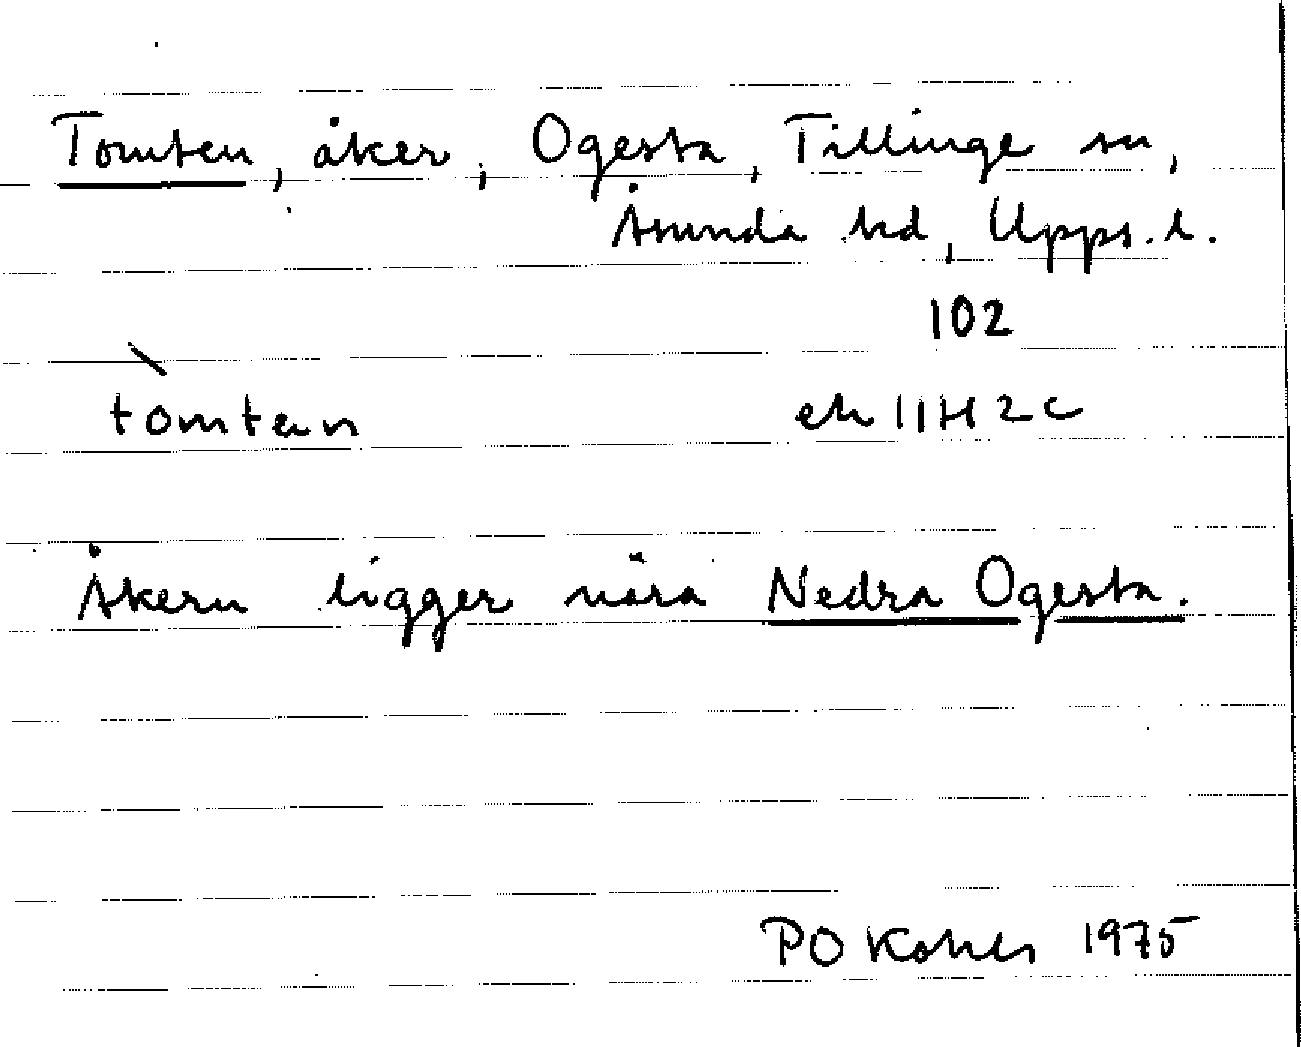 Tomten, åker, Ogesta, Tillinge sn,
Åsunda hd, Upps. l.
102
tòmten ek 11H2c
Åkern ligger nära Nedra Ogesta.
PO 1975